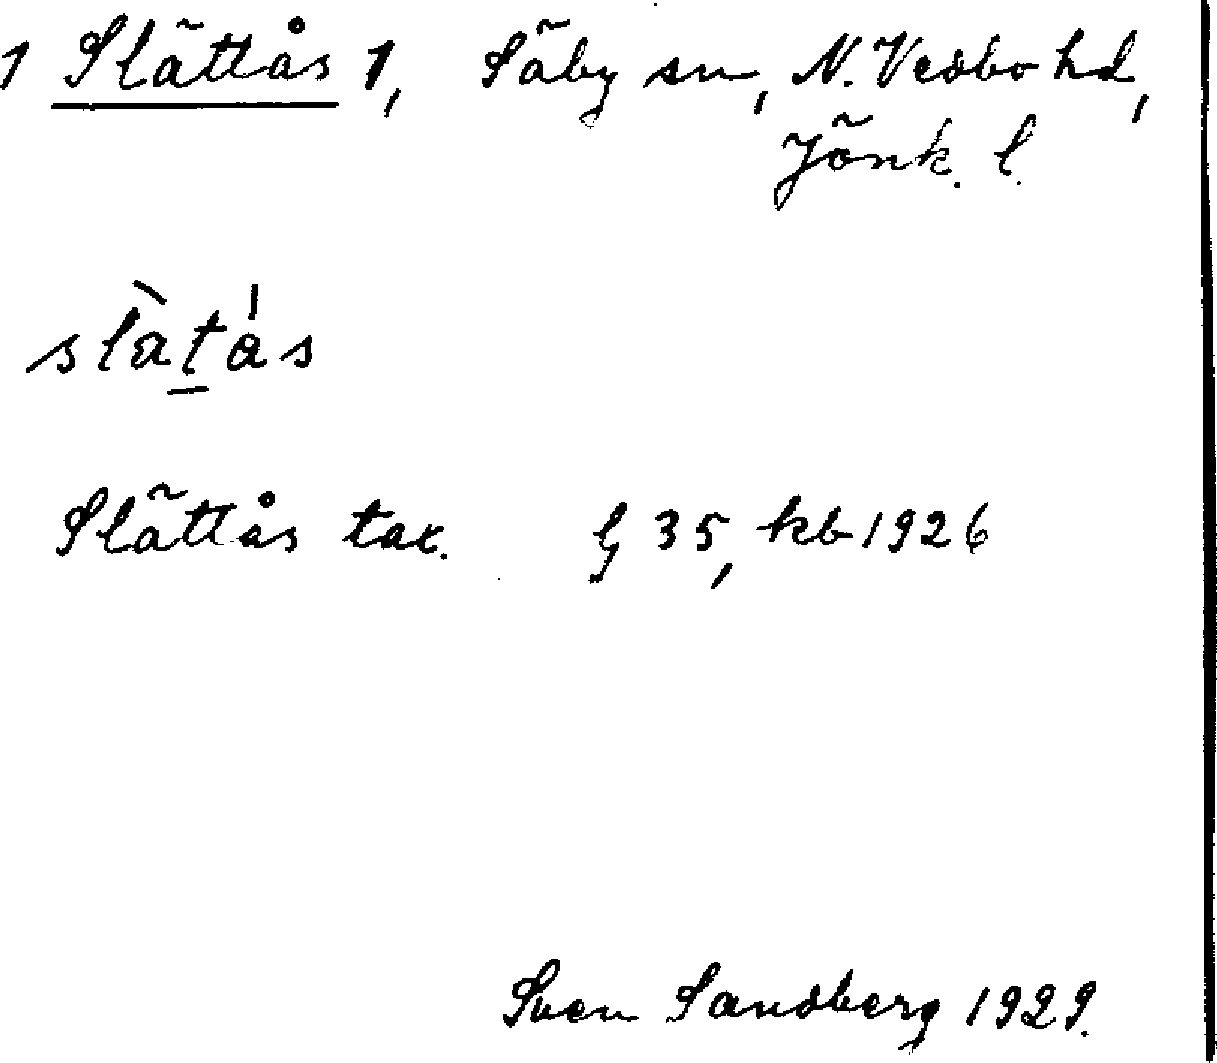 1 Slättås 1, Säby sn, N. Vedbo hd,
Jönk. l.
slàtás
Slättås tax. § 35, kb 1926
Sven Sandberg 1929.